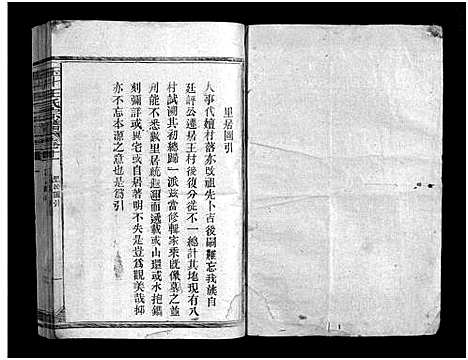 里居圖引
人事代嬗村落亦改祖先卜吉後嗣難忘我族自
廷評公遷居王村後分析不一總計其地現有八
村試溯其初總歸一派茲當修輯家乘既像墓之並
列能不悉數里居統處而遞載或山環或水抱鐫
刻彌詳或異宅或自居著明不失是豈爲觀美哉抑
亦不忘本源之意也是爲引
里居圖引